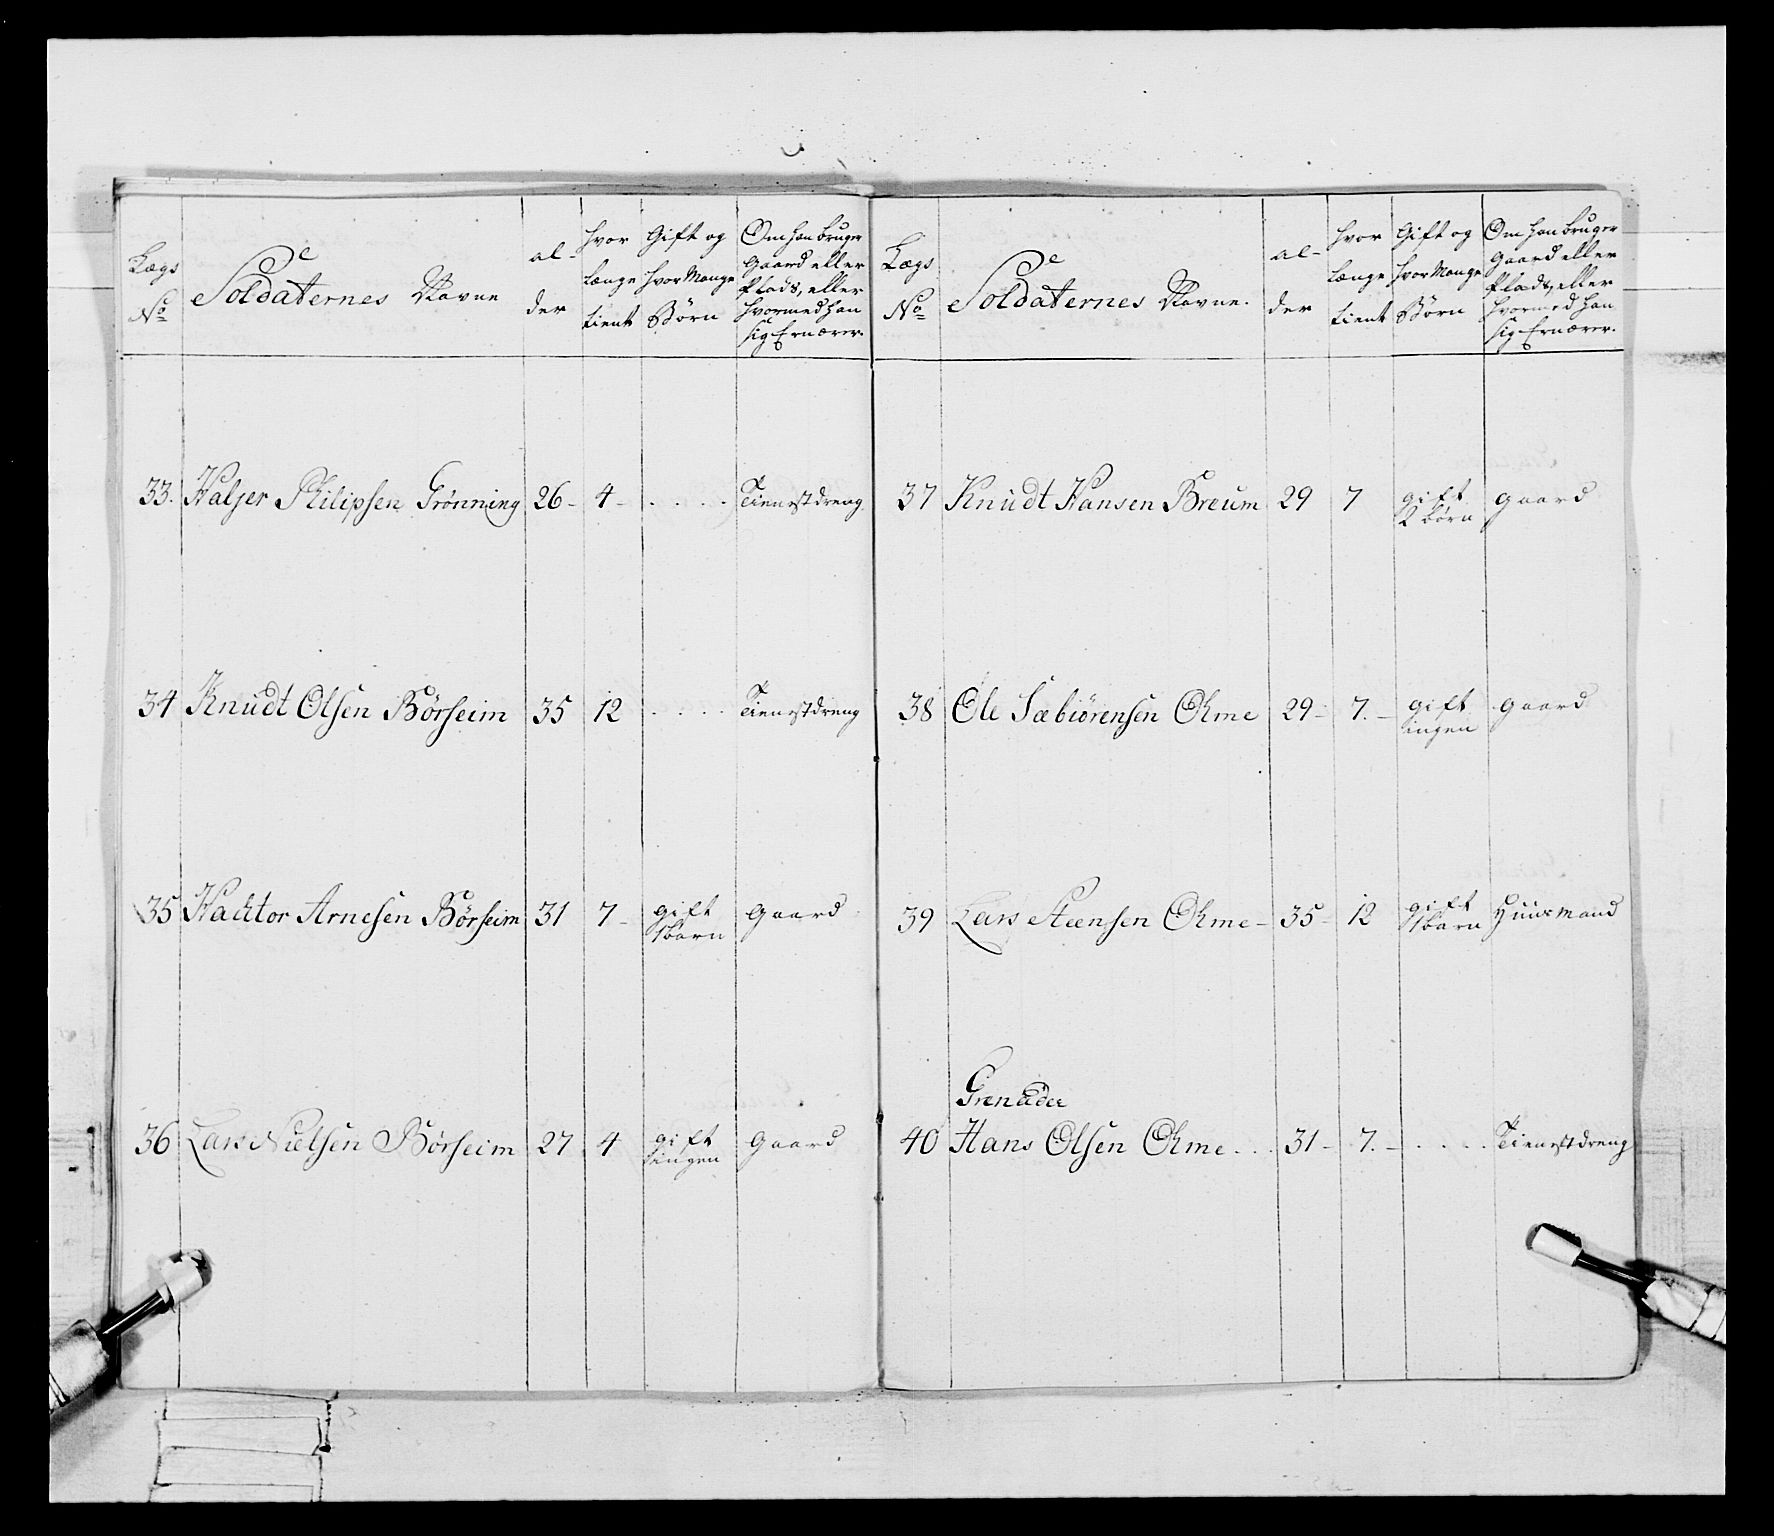 Lægs No
Soldaternes Navne
al-der
hvor længe tient
Gift og hvor Mange Börn
Om han bruger Gaard eller Plads, eller hvormed han sig Ernærer.
33. Haljer Philipsen Grönning 26 - 4 - . . . . Tienestdreng
34 Knudt Olsen Börseim 35 12 . . . . Tienestdreng
35 Hachtor Arnesen Börseim 31 7 - gift 1 barn gaard
36 Lars Nielsen Börseim 27 4 gift ingen gaard
Lægs No
Soldaternes Navne.
al-der
hvor længe tient
Gift og hvor Mange Börn
Om han bruger Gaard eller Plads, eller hvormed han sig Ernærer.
37 Knudt Hansen Breum 29 7 gift 2 börn gaard
38 Ole Sæbiörensen Ohme 29 - 7. - gift ingen gaard
39 Lars Steensen Ohme - 35 - 12 gift 1 barn Huusmand
Grenader
40 Hans Olsen Ohme . . . 31 - 7. - . . . . Tienestdreng